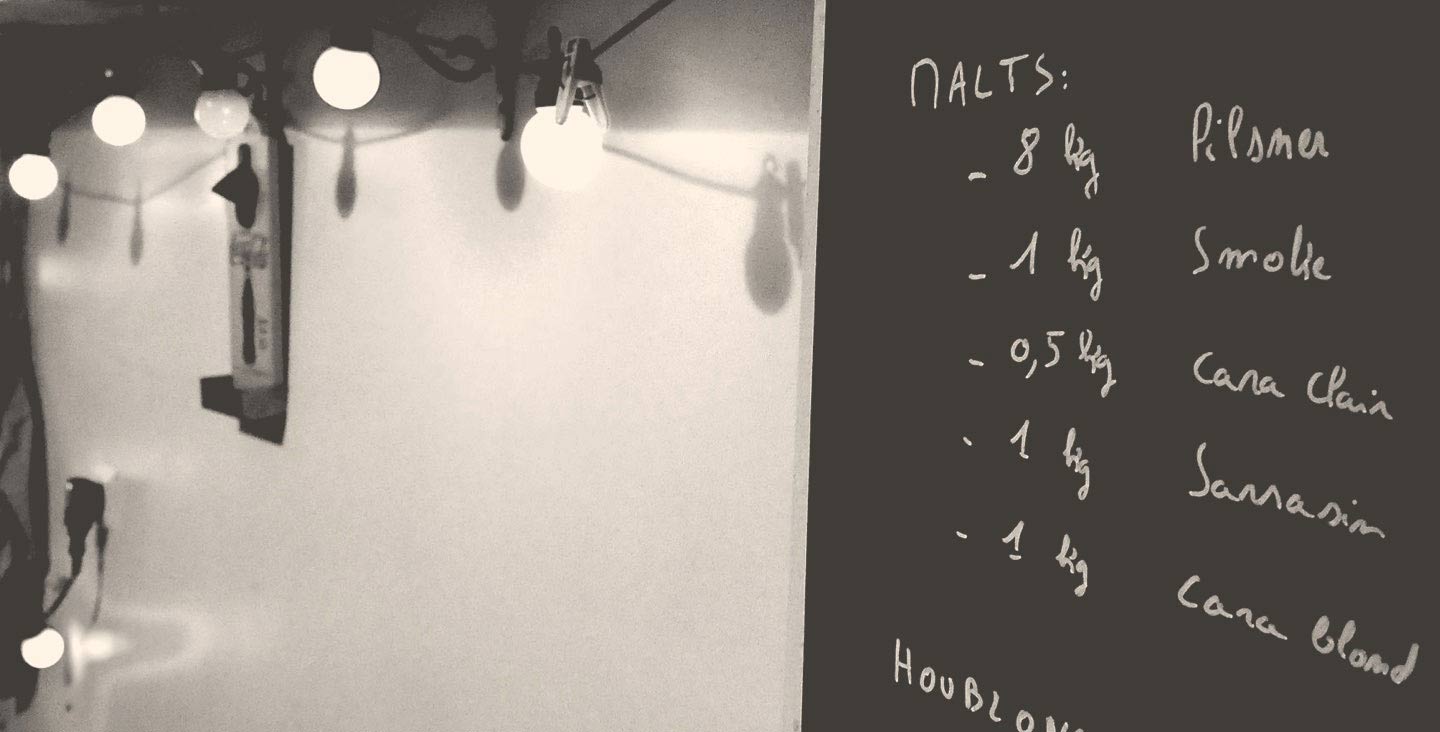 MALTS:
- 8 kg Pilsner
- 1 kg Smoke
- 0,5 kg Cara Clair
- 1 kg Sarrasin
- 1 kg Cara blond
HOUBLON